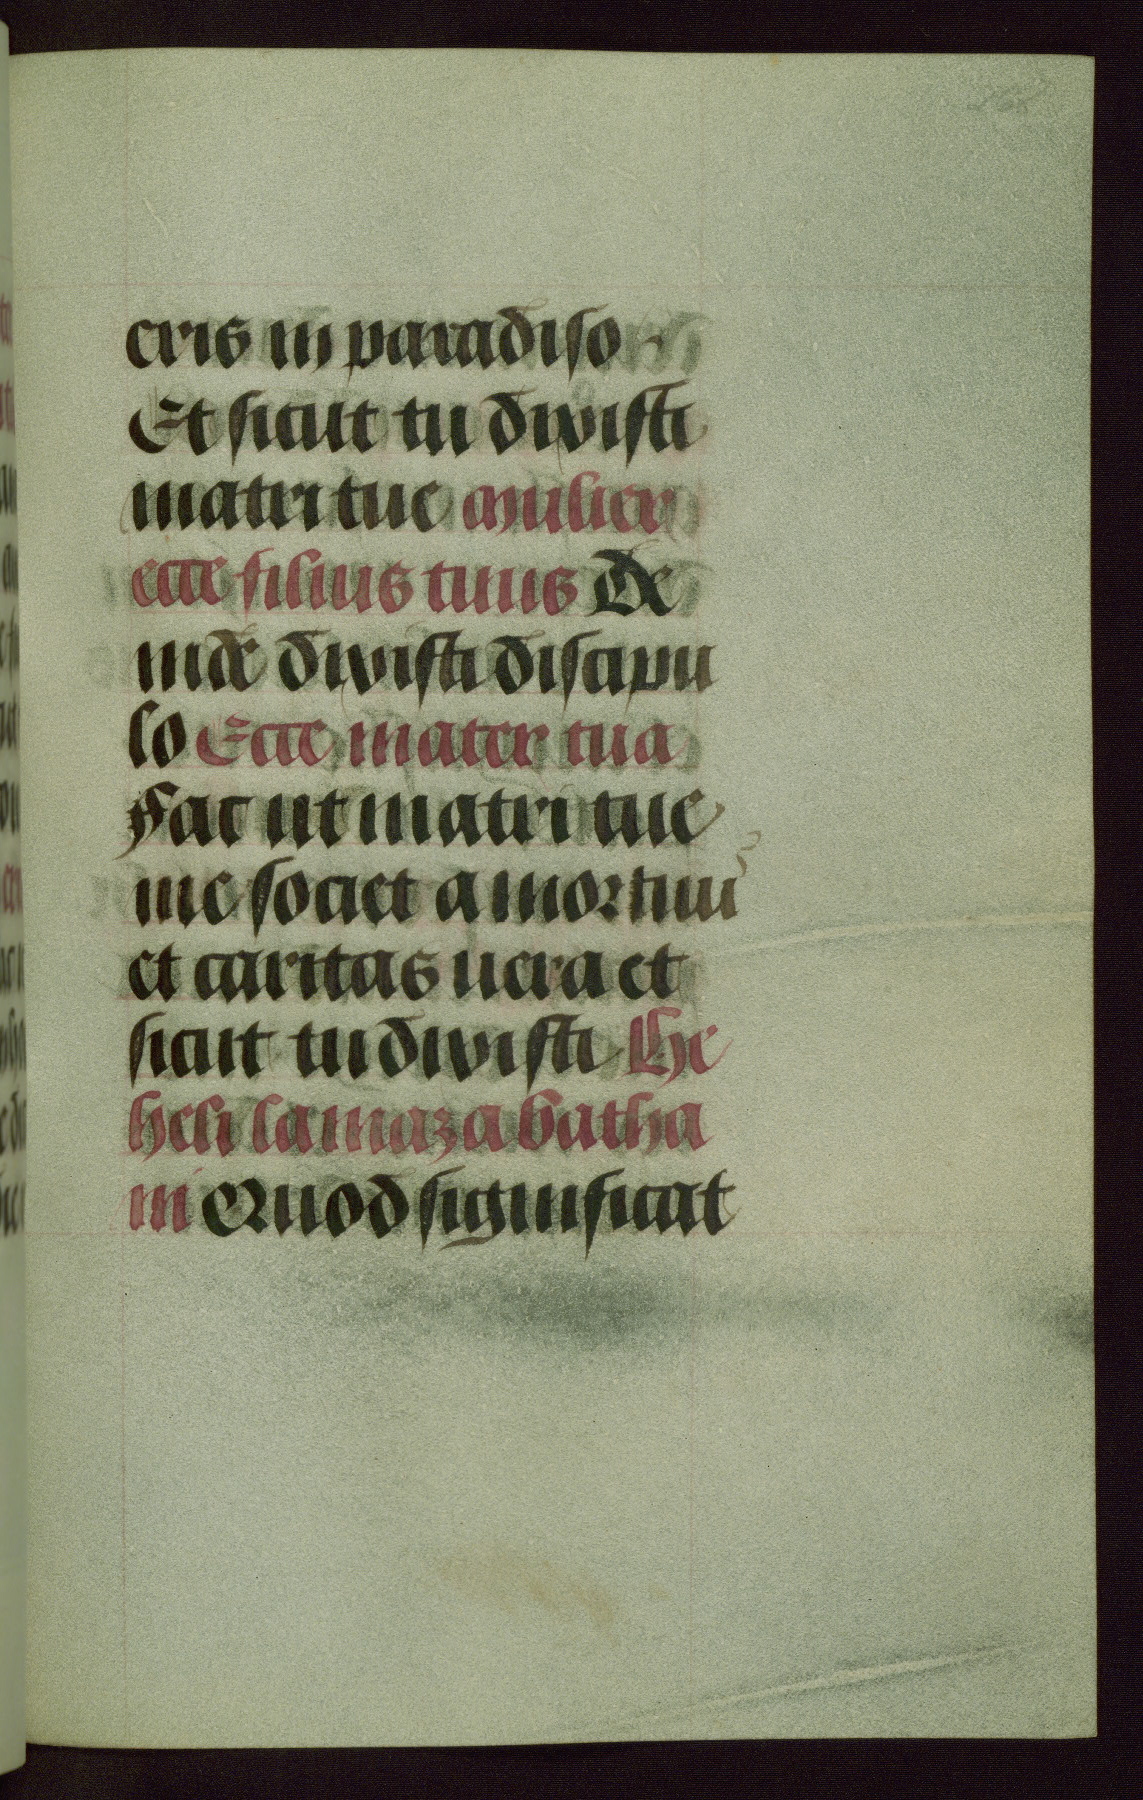 eris in paradiso
Et sicut tu dixisti
matri tue mulier
ecce filius tuus De
inde dixisti discipu
lo Ecce mater tua
Fac ut matri tue
me societ amor tuu
et caritas uera et
sicut tu dixisti He
heli lamazabatha
ni Quod significat